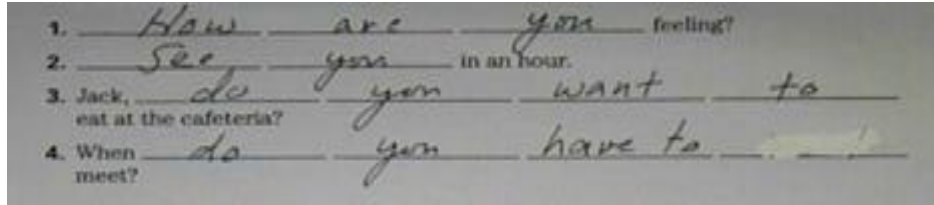 1. How are you feeling?
2. See you in an hour.
3. Jack, do you want to
eat at the cafeteria?
4. When do you have to
meet?